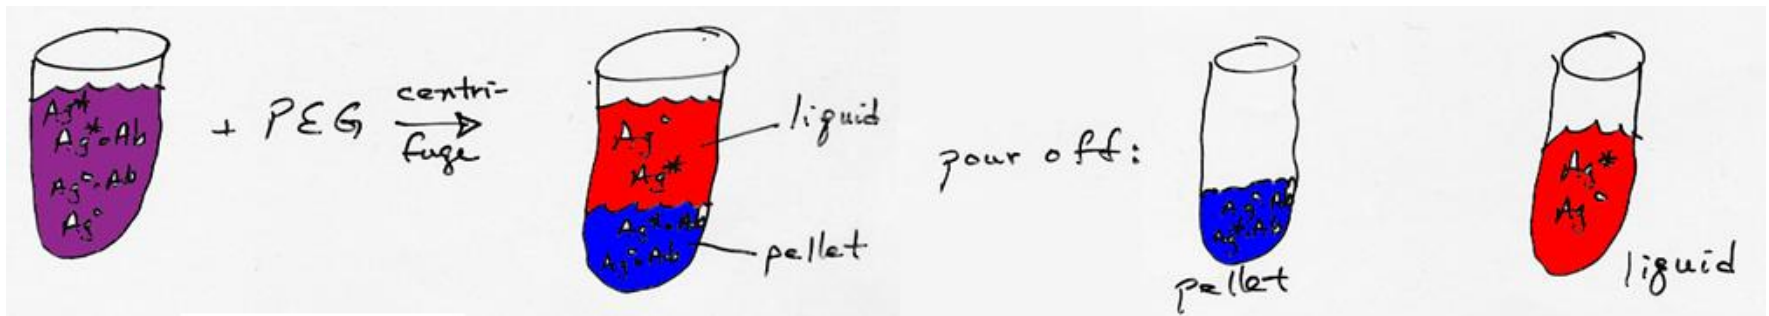 Ag*
Ag*·Ab
Ag°·Ab
Ag°
+ PEG
centri-
fuge
Ag°
Ag*
Ag*·Ab
Ag°·Ab
liquid
pellet
pour off:
Ag°·Ab
Ag*·Ab
pellet
Ag*
Ag°
liquid